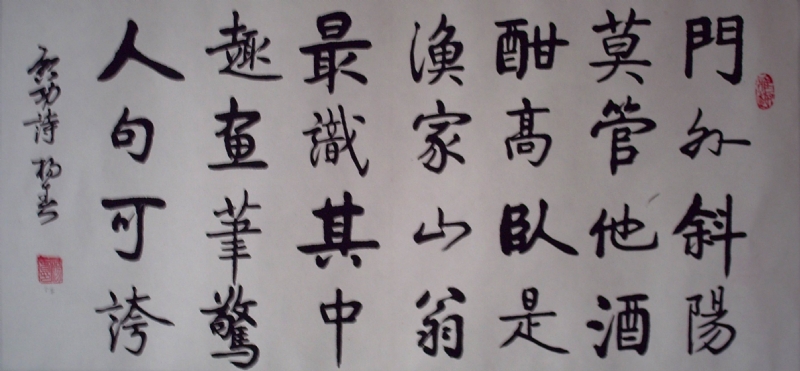 門外斜陽
莫管他酒
酣高臥是
漁家山翁
最識其中
趣畫筆驚
人句可誇
啟功詩